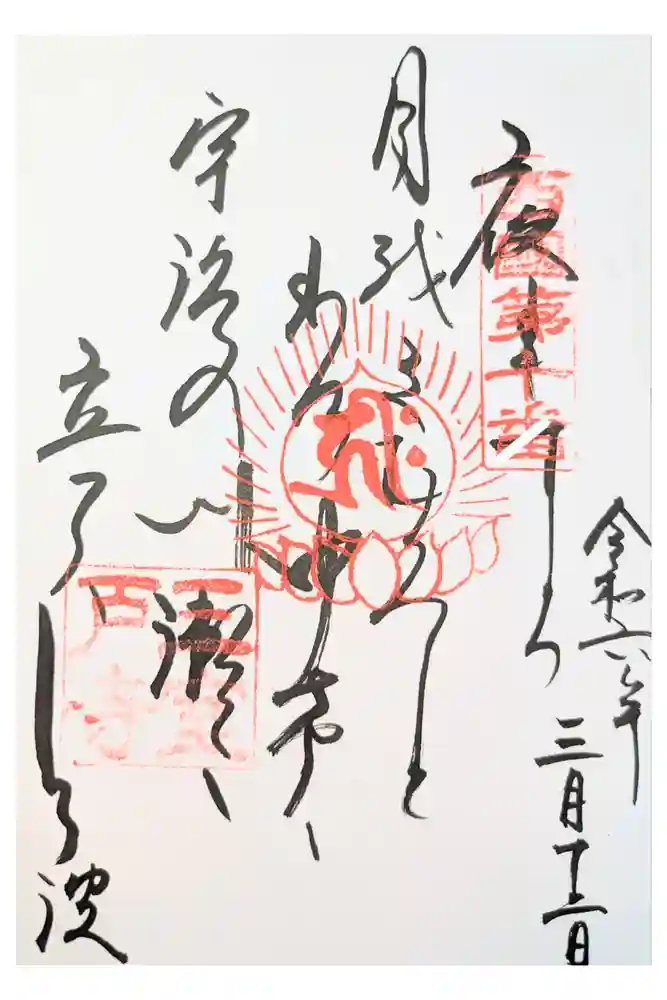 西國第十番
夜もすから
月をみむろと
わけゆけは
宇治の川瀬に
立つはしら波
令和六年
三月十三日